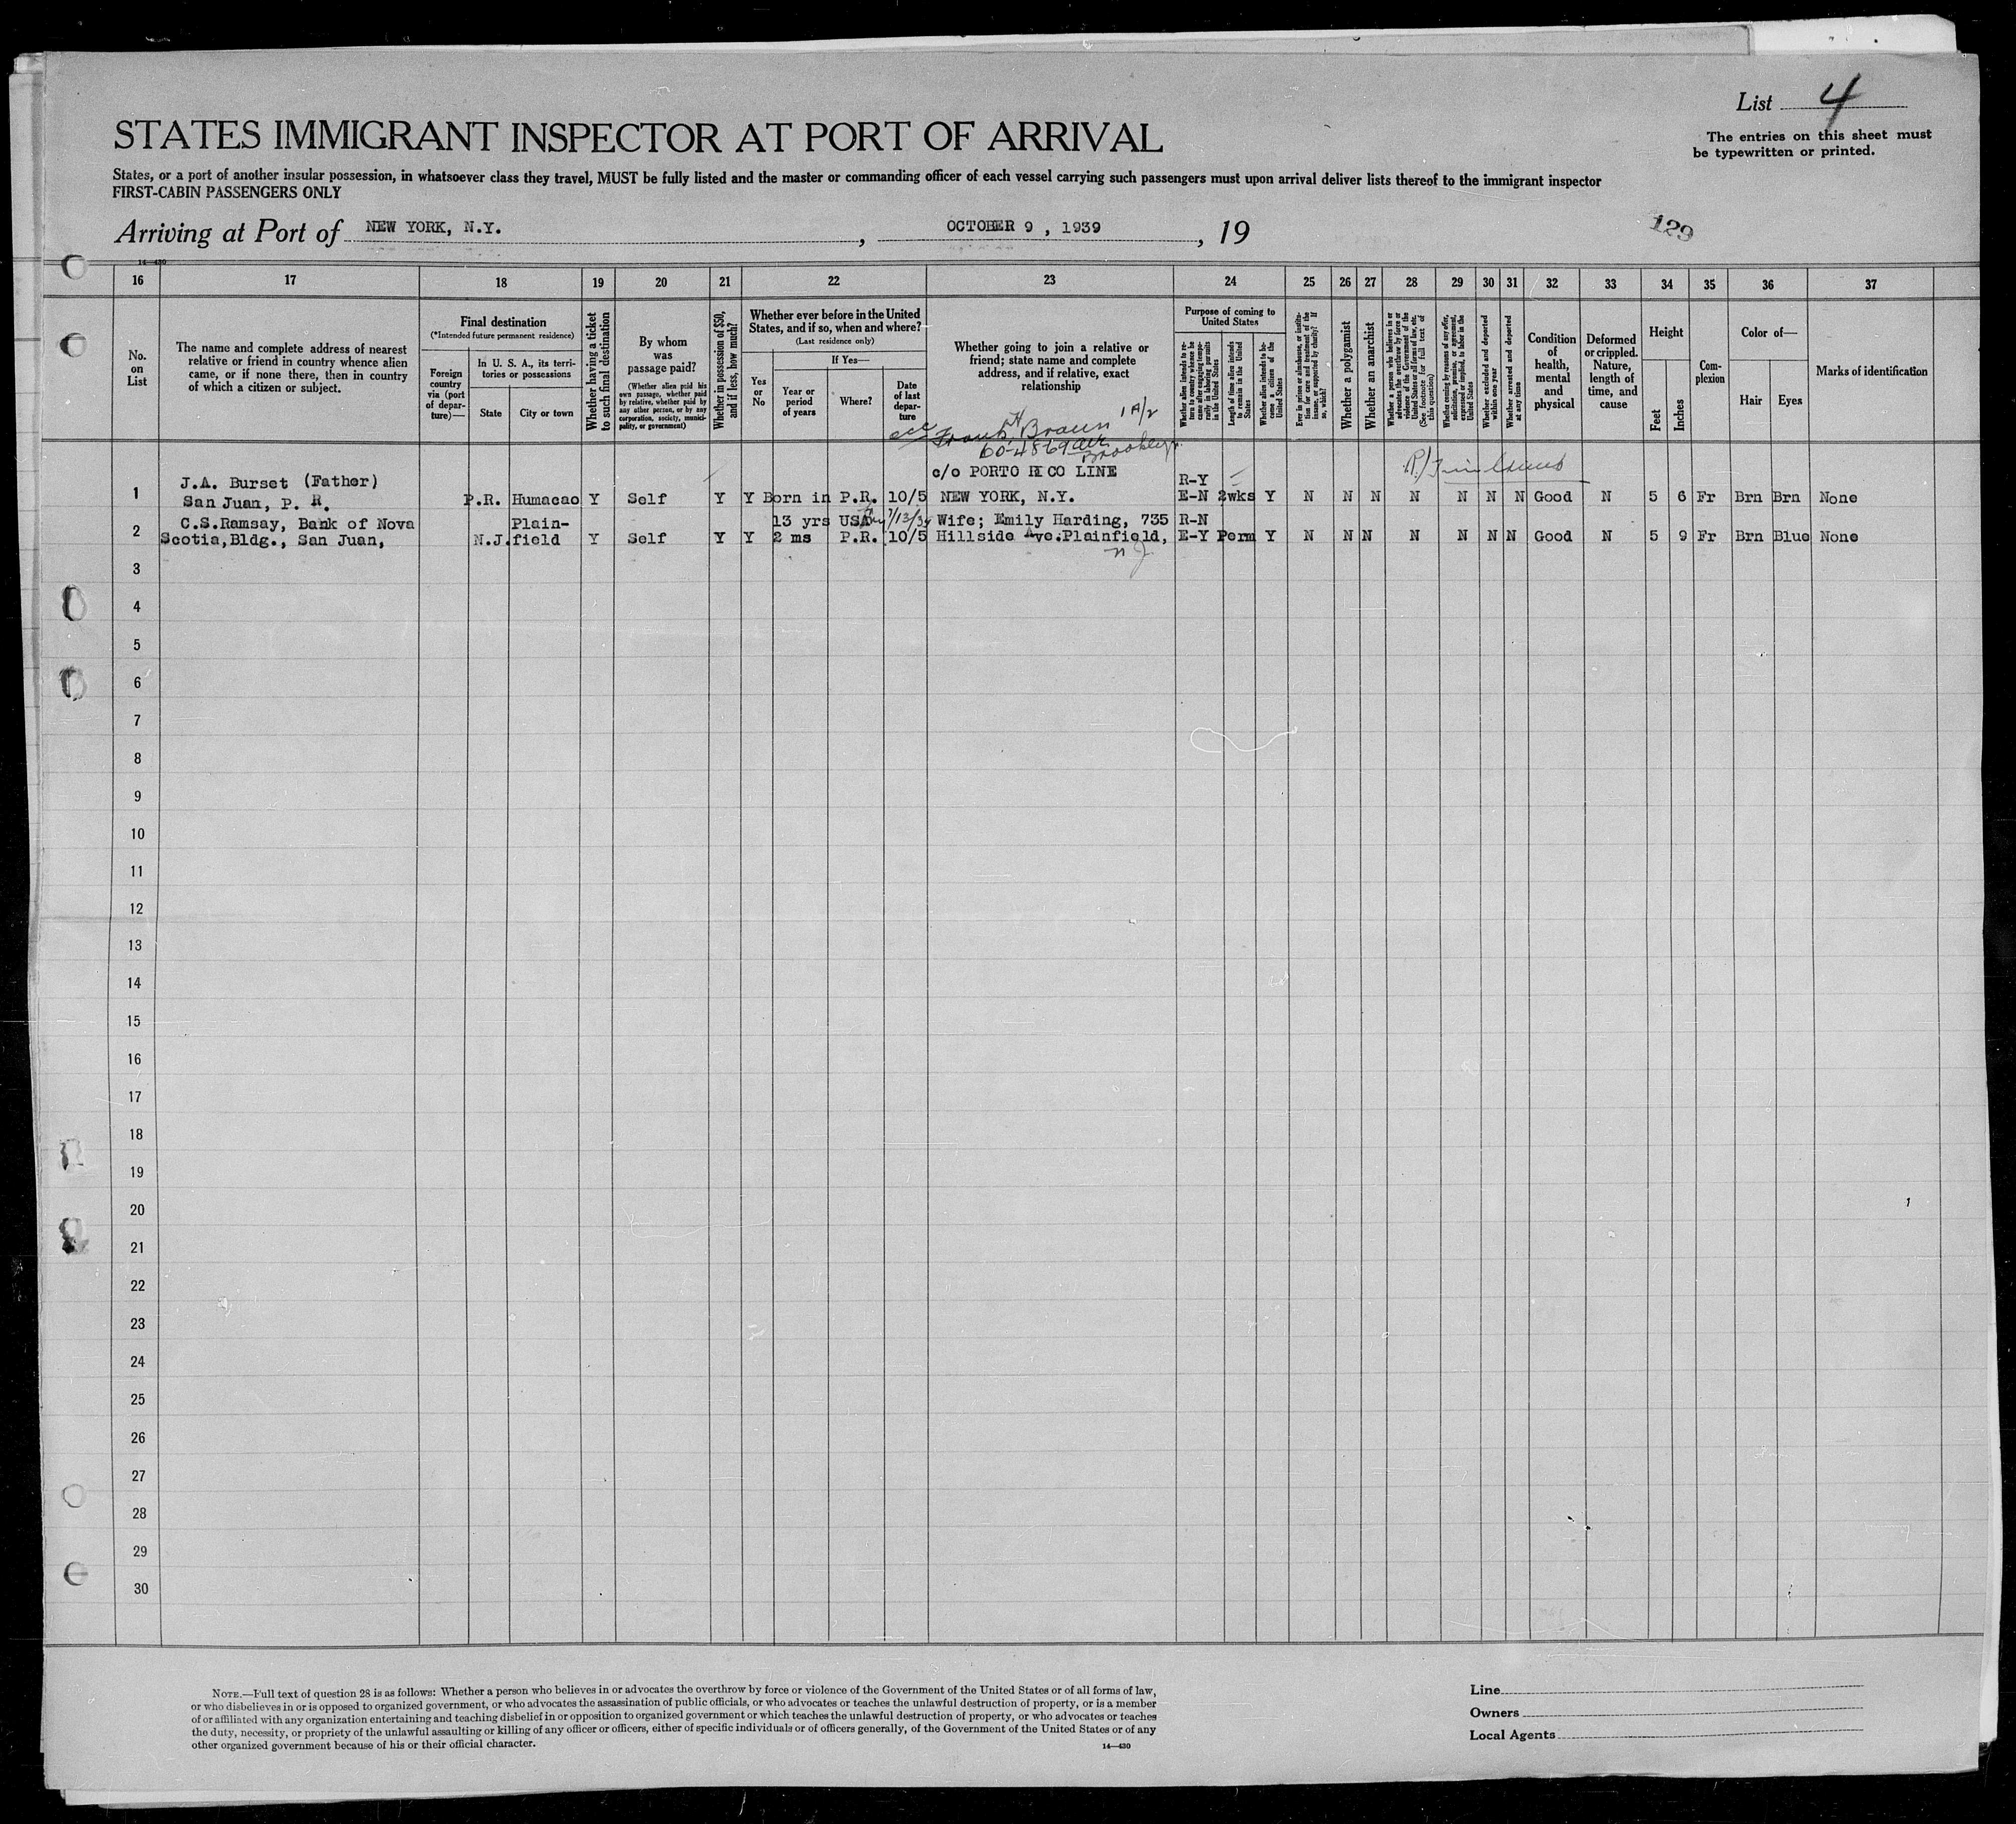 List 4
The entries on this sheet must
be typewritten or printed.
STATES IMMIGRANT INSPECTOR AT PORT OF ARRIVAL
States, or a port of another insular possession, in whatsoever class they travel, MUST be fully listed and the master or commanding officer of each vessel carrying such passengers must upon arrival deliver lists thereof to the immigrant inspector
FIRST-CABIN PASSENGERS ONLY
Arriving at Port of NEW YORK, N.Y. , OCTOBER 9 , 1939 , 19
129
14—430
16 17 18 19 20 21 22 23 24 25 26 27 28 29 30 31 32 33 34 35 36 37
No. on List
The name and complete address of nearest relative or friend in country whence alien came, or if none there, then in country of which a citizen or subject.
Final destination
(*Intended future permanent residence)
Foreign country via (port of departure)—
In U. S. A., its territories or possessions
State
City or town
Whether having a ticket to such final destination
By whom was passage paid?
(Whether alien paid his own passage, whether paid by relative, whether paid by any other person, or by any corporation, society, municipality, or government)
Whether in possession of $50, and if less, how much?
Whether ever before in the United States, and if so, when and where?
(Last residence only)
Yes or No
If Yes—
Year or period of years
Where?
Date of last departure
Whether going to join a relative or friend; state name and complete address, and if relative, exact relationship
Purpose of coming to United States
Length of time alien intends to remain in the United States
Whether alien intends to become a citizen of the United States
Whether a polygamist
Whether an anarchist
Whether excluded and deported within one year
Whether arrested and deported at any time
Condition of health, mental and physical
Deformed or crippled. Nature, length of time, and cause
Height
Feet
Inches
Complexion
Color of—
Hair
Eyes
Marks of identification
Frank H Braun
Brooklyn
c/o PORTO RICO LINE
J.A. Burset (Father) R-Y
1 San Juan, P. R. P.R. Humacao Y Self Y Y Born in P.R. 10/5 NEW YORK, N.Y. E-N 2wks Y N N N N N N N Good N 5 6 Fr Brn Brn None
C.S.Ramsay, Bank of Nova Plain- 13 yrs USA 7/13/39 Wife; Emily Harding, 735 R-N
2 Scotia,Bldg., San Juan, N.J. field Y Self Y Y 2 ms P.R. 10/5 Hillside Ave.Plainfield, E-Y Perm Y N N N N N N N Good N 5 9 Fr Brn Blue None
N J
3
4
5
6
7
8
9
10
11
12
13
14
15
16
17
18
19
20
21
22
23
24
25
26
27
28
29
30
NOTE.—Full text of question 28 is as follows: Whether a person who believes in or advocates the overthrow by force or violence of the Government of the United States or of all forms of law,
or who disbelieves in or is opposed to organized government, or who advocates the assassination of public officials, or who advocates or teaches the unlawful destruction of property, or is a member
of or affiliated with any organization entertaining and teaching disbelief in or opposition to organized government or which teaches the unlawful destruction of property, or who advocates or teaches
the duty, necessity, or propriety of the unlawful assaulting or killing of any officer or officers, either of specific individuals or of officers generally, of the Government of the United States or of any
other organized government because of his or their official character.
14—430
Line
Owners
Local Agents